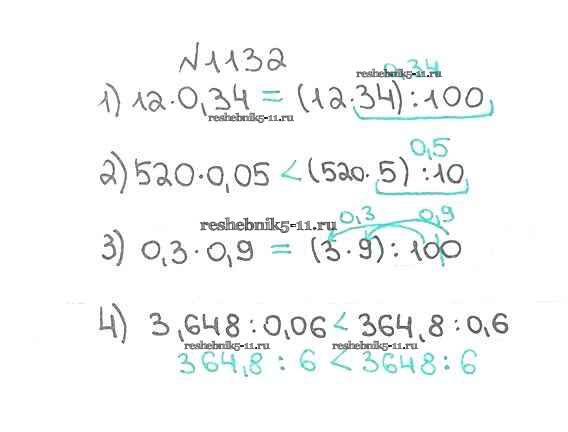 №1132
0,34
reshebnik5-11.ru
1) 12·0,34 = (12·34):100
reshebnik5-11.ru
0,5
2) 520·0,05 < (520·5):10
reshebnik5-11.ru
0,3 0,9
3) 0,3·0,9 = (3·9):100
4) 3,648:0,06 < 364,8:0,6
reshebnik5-11.ru reshebnik5-11.ru
364,8 : 6 < 3648 : 6